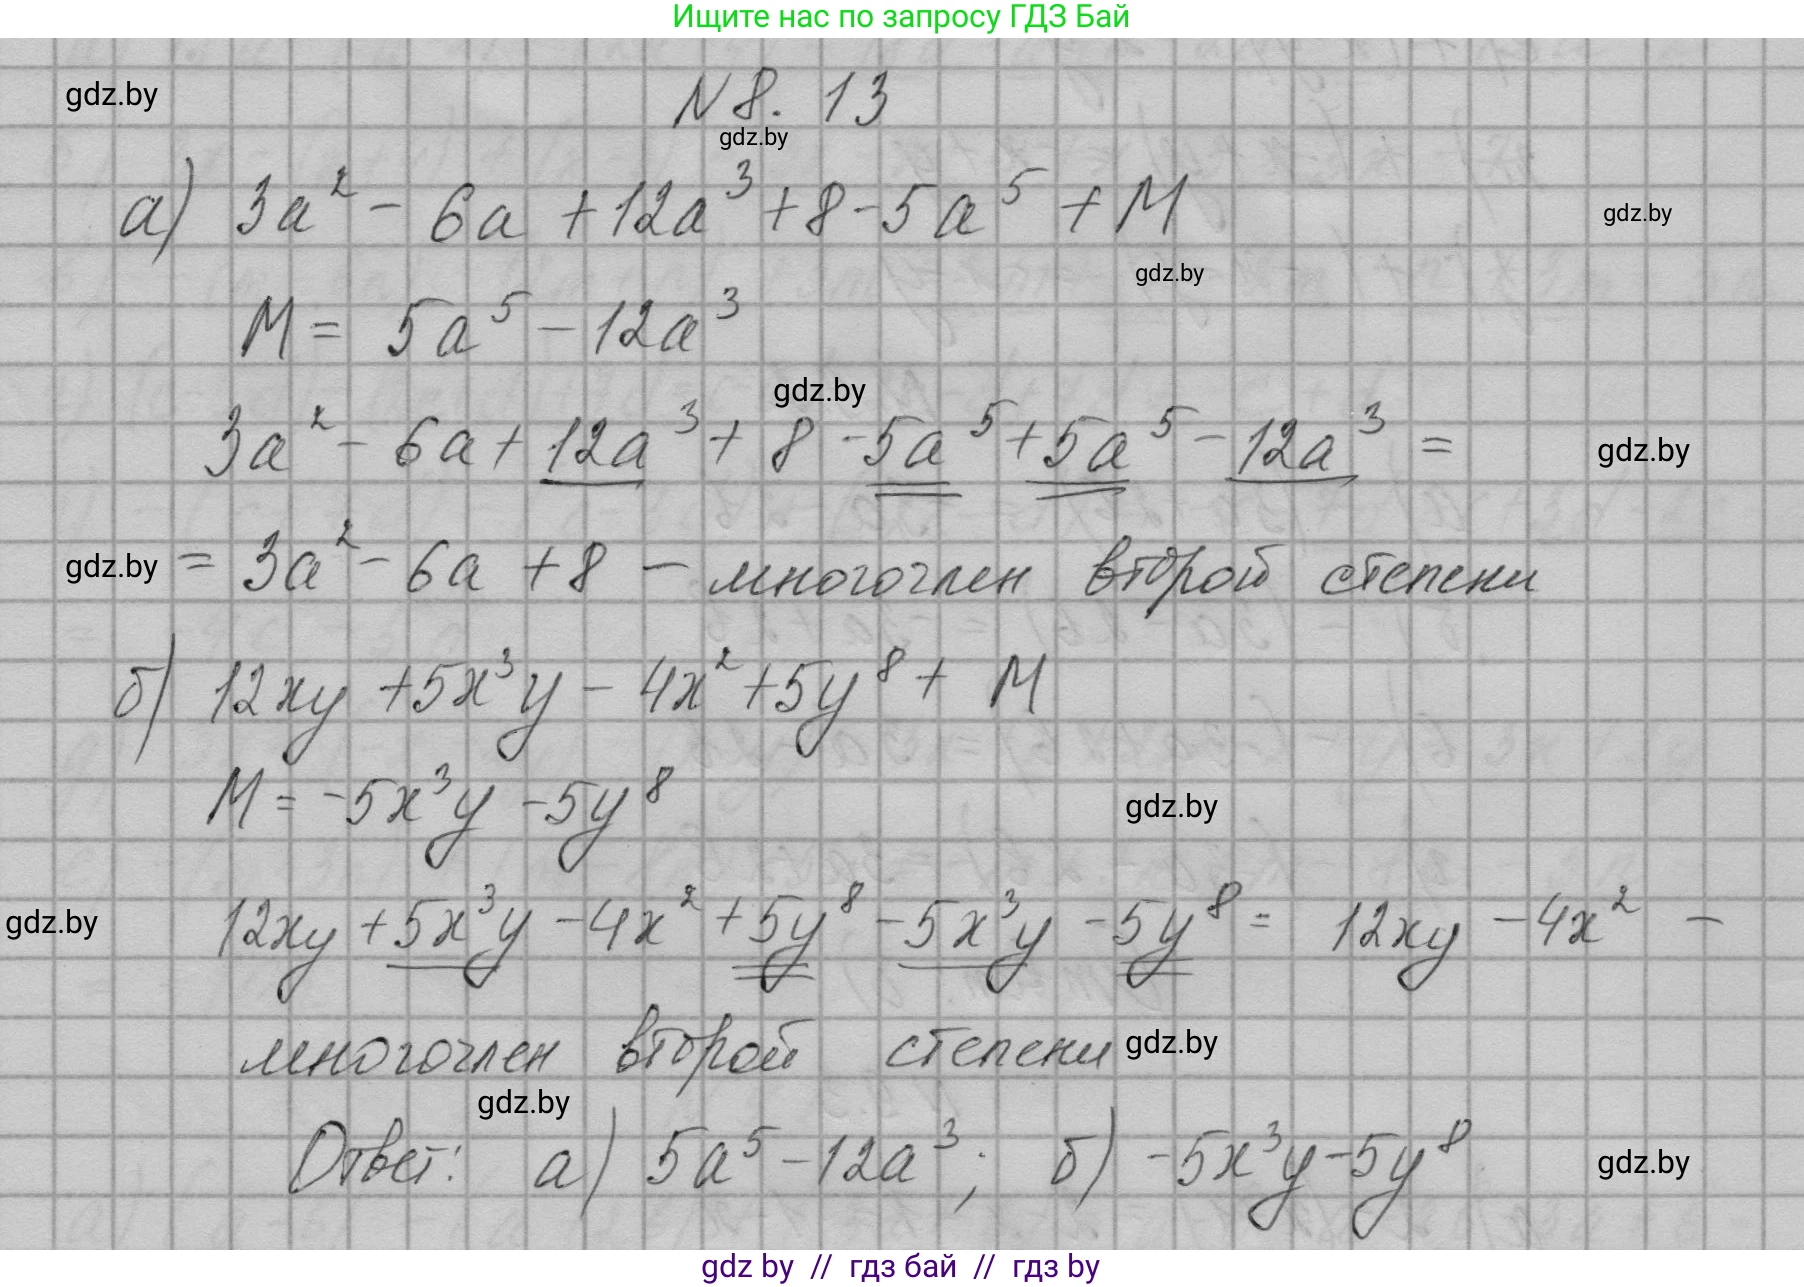 Ищите нас по запросу ГДЗ Бай
gdz.by
N 8. 13
gdz.by
а) 3a² - 6a + 12a³ + 8 - 5a⁵ + M
gdz.by
gdz.by
M = 5a⁵ - 12a³
gdz.by
3a² - 6a + 12a³ + 8 - 5a⁵ + 5a⁵ - 12a³ =
gdz.by
gdz.by
= 3a² - 6a + 8 — многочлен второй степени
б) 12xy + 5x³y - 4x² + 5y⁸ + M
M = -5x³y - 5y⁸
gdz.by
gdz.by
12xy + 5x³y - 4x² + 5y⁸ - 5x³y - 5y⁸ = 12xy - 4x² -
многочлен второй степени
gdz.by
gdz.by
Ответ: а) 5a⁵ - 12a³; б) -5x³y - 5y⁸
gdz.by
gdz by // гдз бай // гдз by